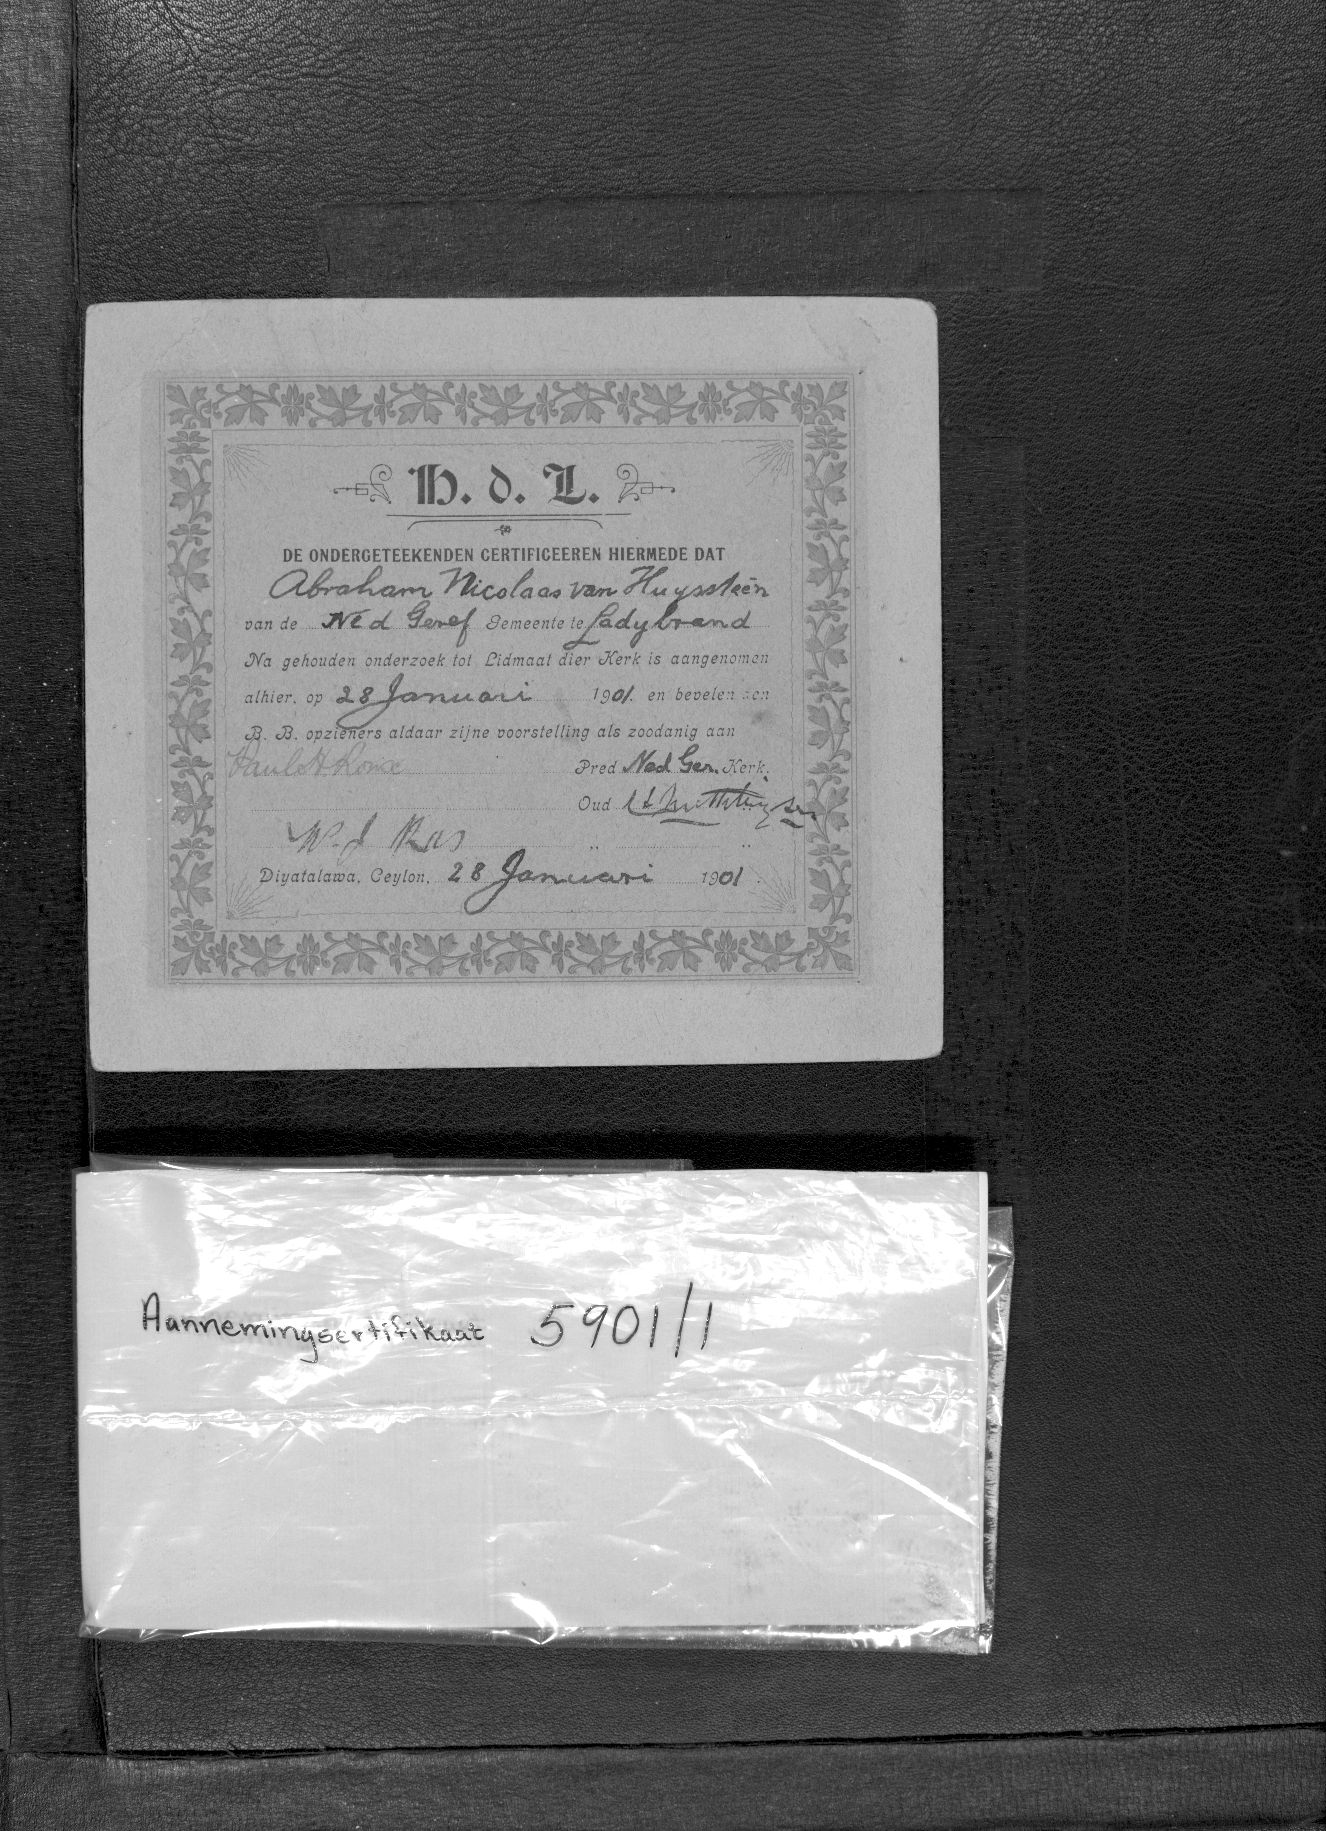 H. d. L.
DE ONDERGETEEKENDEN CERTIFICEEREN HIERMEDE DAT
Abraham Nicolaas van Huyssteen
van de Ned Geref Gemeente te Ladybrand
Na gehouden onderzoek tot Lidmaat dier Kerk is aangenomen
alhier, op 28 Januari 1901. en bevelen aan
B. B. opzieners aldaar zijne voorstelling als zoodanig aan
Paul Roux Pred Ned Ger. Kerk.
Oud
W. J.
Diyatalawa, Ceylon, 28 Januari 1901.
Aannemingsertifikaat 5901/1